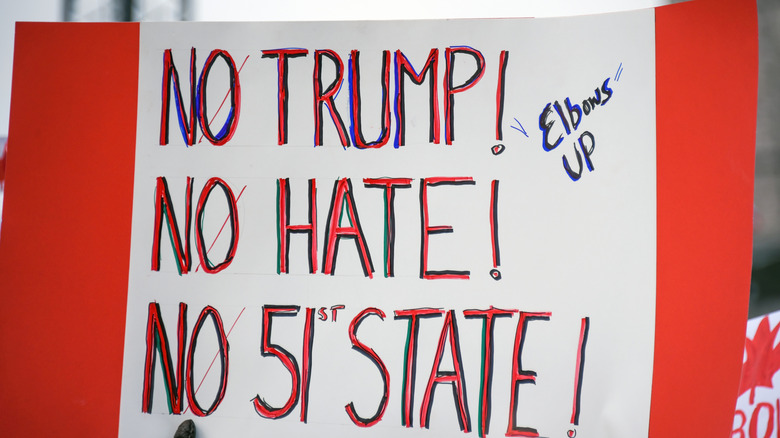 NO TRUMP!
"Elbows UP
NO HATE!
NO 51ST STATE!